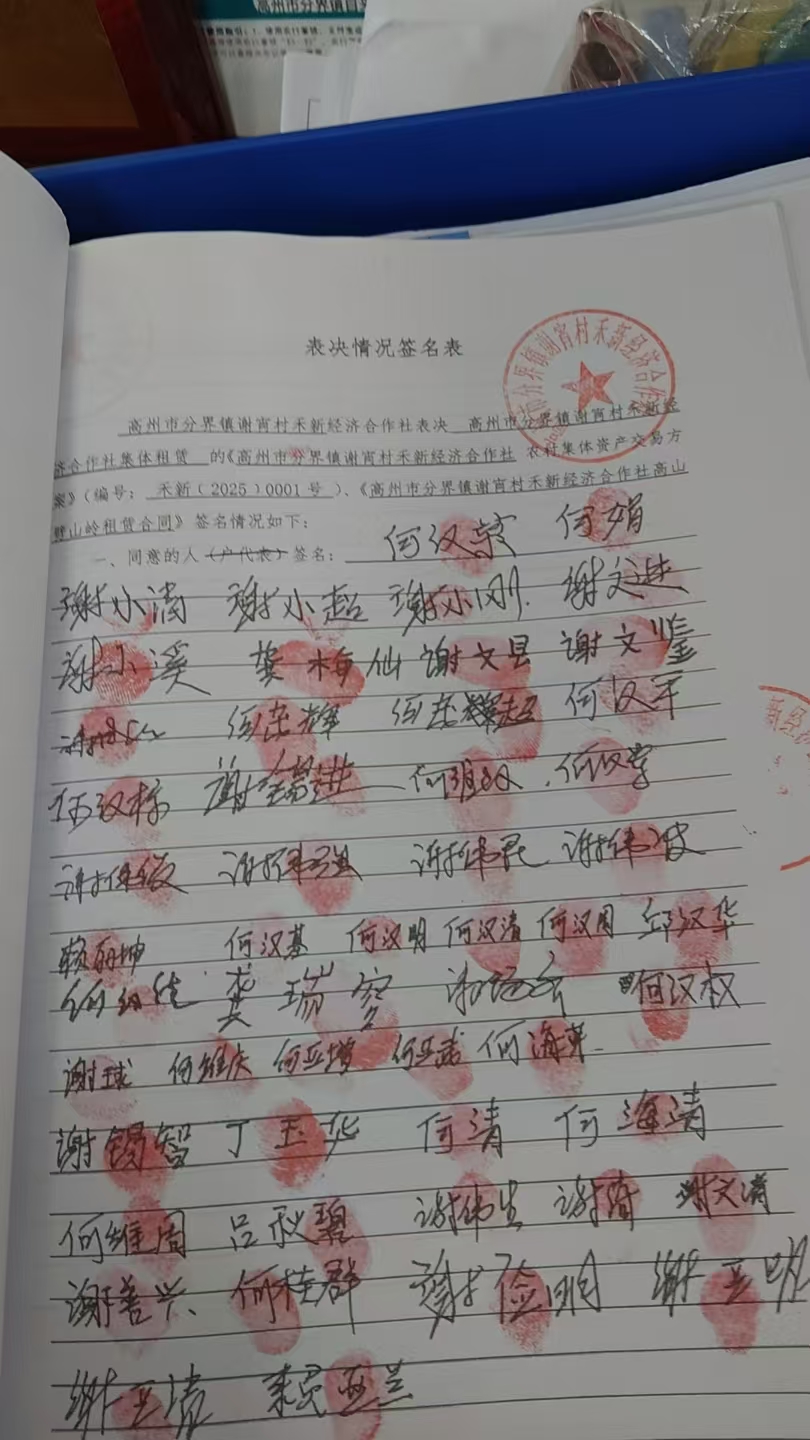 高州市分界镇
表决情况签名表
高州市分界镇谢宵村禾新经济合作社表决 高州市分界镇谢宵村禾新经
济合作社集体租赁 的《高州市分界镇谢宵村禾新经济合作社 农村集体资产交易方
案》(编号: 禾新(2025)0001号)、《高州市分界镇谢宵村禾新经济合作社高山
山岭租赁合同》 签名情况如下:
一、同意的人(户代表)签名: 何汉荣 何娟
谢小清 谢小超 谢小刚 谢文进
谢小溪 龚梅仙 谢文昌 谢文鉴
何志辉 何汉平
何汉栋 何汉学
谢伟强 谢伟民 谢伟波
何汉基 何汉明 何汉清 何汉周 邱汉华
龚瑞 何汉权
谢球 何维庆 何亚增 何亚球 何海
谢锡智 丁玉华 何清 何海清
何维周 吕秋碧 谢伟生 谢清 谢文清
谢善兴 何桂群 谢俭明 谢亚明
谢亚清 赖亚兰